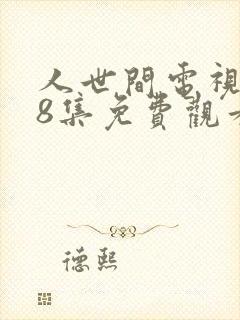 人世間電視
8集免費觀
德熙